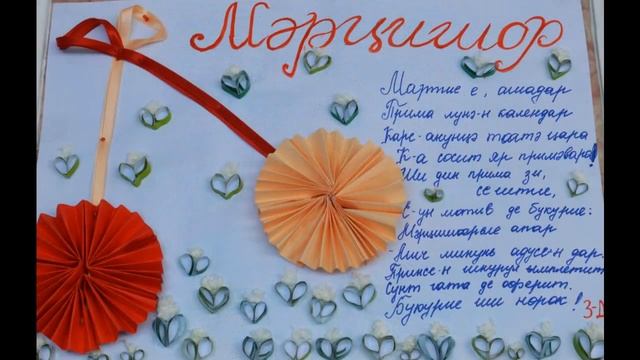 Мэрцишор
Мартие е, ашадар
Прима лунэ-н календар
Каре-анунцэ тоатэ цара
К-а сосит яр примэвара!
Ши дин прима зи,
се штие,
Е-ун мотив де букурие:
Мэрцишоареле апар
-Мич минунь адусе-н дар.
Принсе-н шнурурь ымплетите
Сунт гата де оферит.
Букурие ши норок!
3-Д